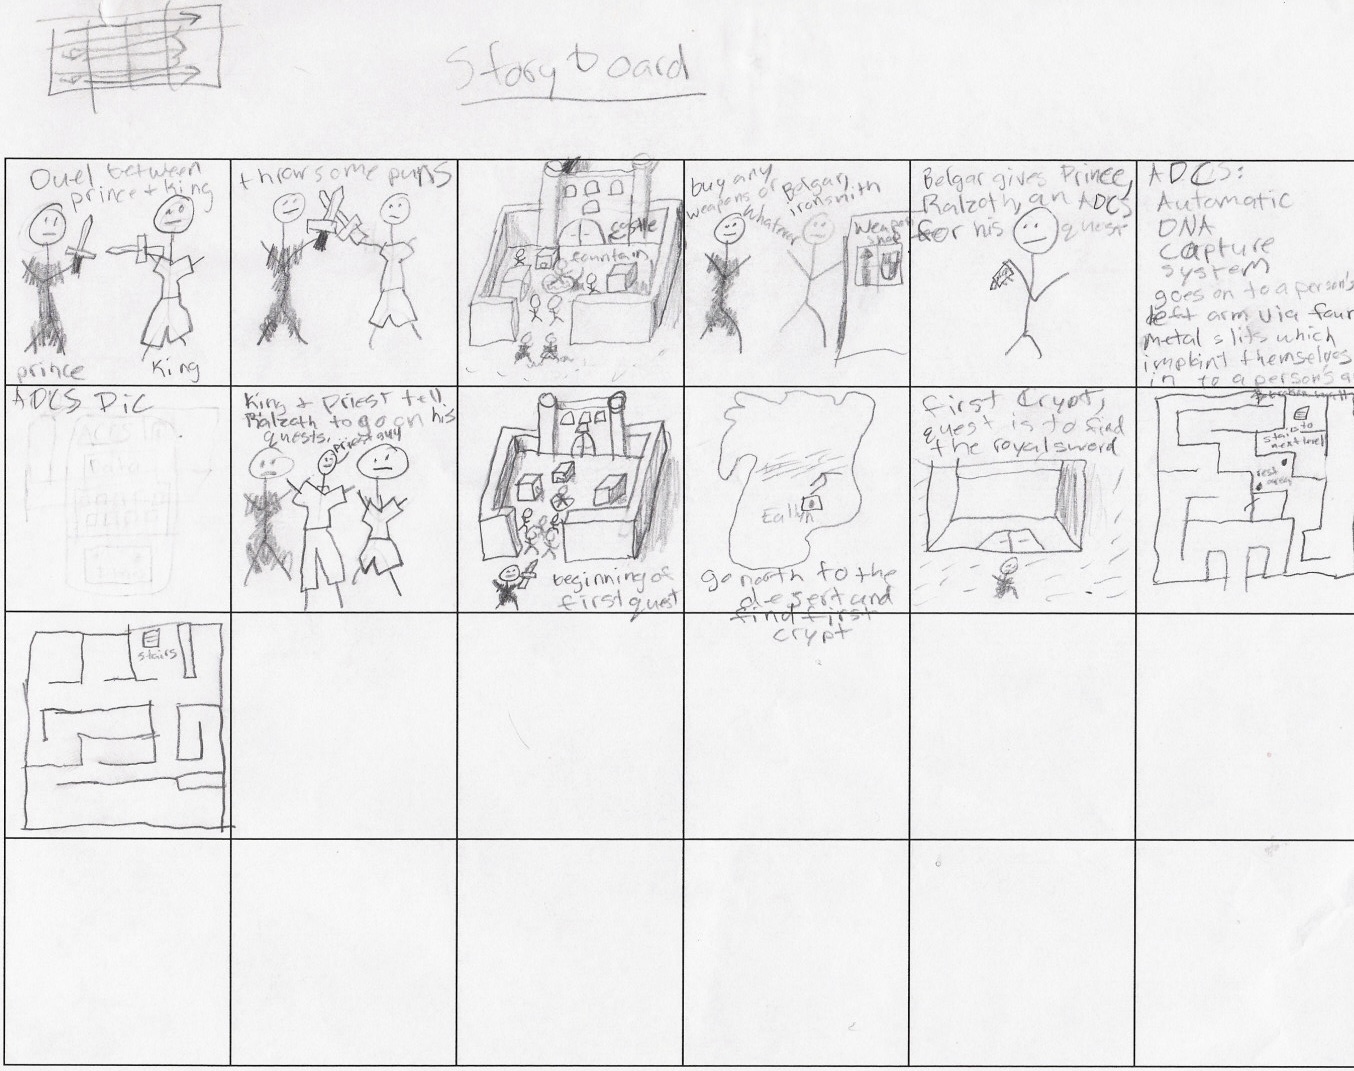 Storyboard
Duel between
prince + king
prince
King
throw some puns
castle
fountain
buy any
weapons or
whatever
Belgar,
ironsmith
Weapon
shop
Belgar gives Prince,
Ralzoth, an ADCS
for his quest
ADCS:
Automatic
DNA
capture
system
goes on to a person's
left arm via four
metal slits which
implint themselves
in to a person's a
ADCS Pic
ADCS
Data
King + Priest tell
Ralzoth to go on his
quests.
priest guy
beginning of
first quest
go north to the
desert and
find first
crypt
first Crypt,
quest is to find
the royal sword
stairs to
next level
rest
area
stairs